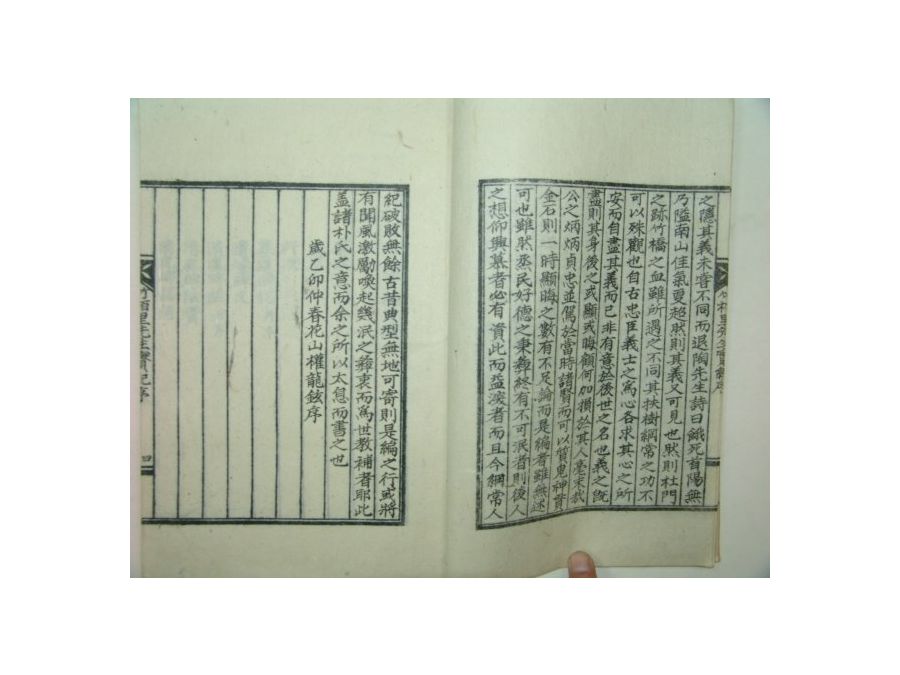 之隱其義未嘗不同而退陶先生詩曰餓死首陽無
乃隘南山佳氣更超然則其義又可見也然則杜門
之跡竹橋之血雖所遇之不同其扶樹綱常之功不
可以殊觀也自古忠臣義士之爲心各求其心之所
安而自盡其義而已非有意於後世之名也義之旣
盡則其身後之或顯或晦顧何加損於其人毫末哉
公之炳炳貞忠並駕於當時諸賢而可以質鬼神貫
金石則一時顯晦之數有不足論而是編者雖無述
可也雖然烝民好德之秉彝終有不可泯者則後人
之想仰興慕者必有資此而益深者而且今綱常人
紀破敗無餘古昔典型無地可寄則是編之行或將
有聞風激勵喚起幾泯之彝衷而爲世敎補者耶此
盖諸朴氏之意而余之所以太息而書之也
歲乙卯仲春花山權龍鉉序
里先生實紀序 四